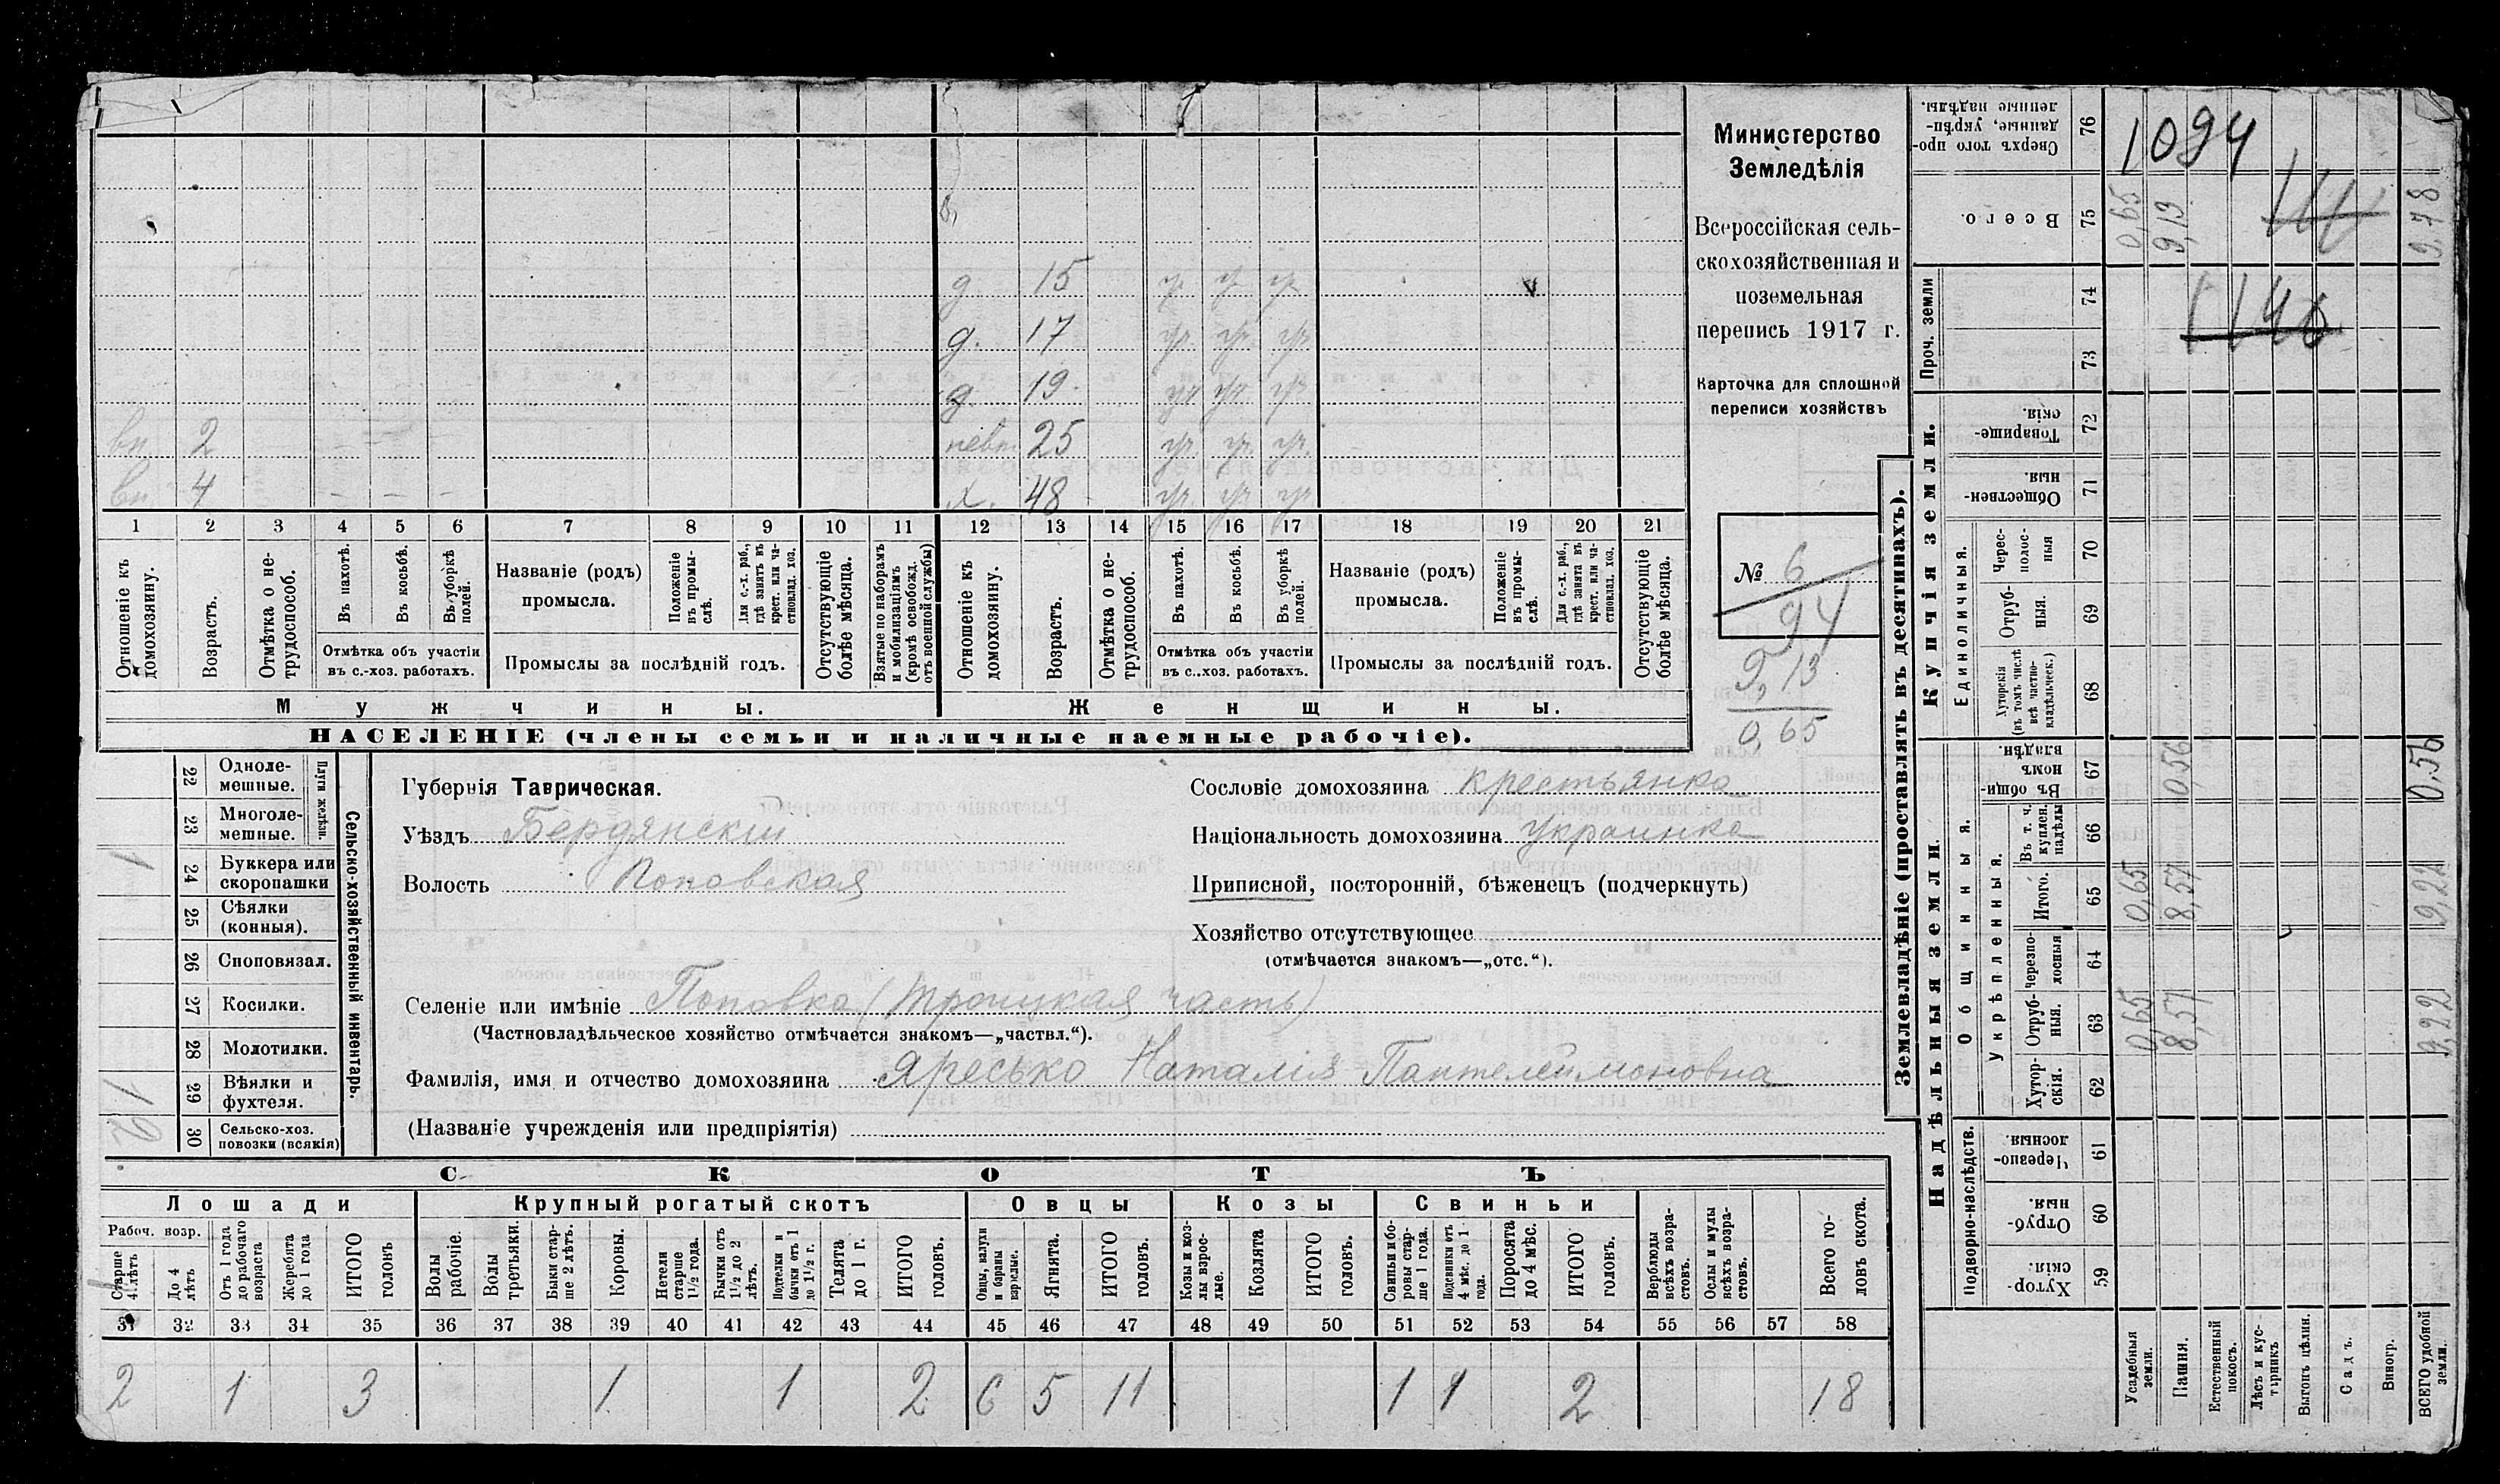 Министерство
Земледѣлія
Всероссійская сель-
скохозяйственная и
поземельная
перепись 1917 г.
Карточка для сплошной
переписи хозяйствъ
№ 6
94
9,13
0,65
д. 15 уч. уч. уч.
д. 17 уч. уч. уч.
д. 19 уч. уч. уч.
вн. 2 невѣст. 25 уч. уч. уч.
вн. 4 – – – х. 48 уч. уч. уч.
1 2 3 4 5 6 7 8 9 10 11 12 13 14 15 16 17 18 19 20 21
Отношеніе къ домохозяину.
Возрастъ.
Отмѣтка о не-трудоспособ.
Въ пахотѣ.
Въ косьбѣ.
Въ уборкѣ полей.
Отмѣтка объ участіи въ с.-хоз. работахъ.
Названіе (родъ) промысла.
Положеніе въ промы-слѣ.
Для с.-х. раб., гдѣ занятъ въ крест. или ча-стновлад. хоз.
Промыслы за послѣдній годъ.
Отсутствующіе болѣе мѣсяца.
Взятые по наборамъ и мобилизаціямъ (кромѣ освобожд. отъ военной службы)
Отношеніе къ домохозяину.
Возрастъ.
Отмѣтка о не-трудоспособ.
Въ пахотѣ.
Въ косьбѣ.
Въ уборкѣ полей.
Отмѣтка объ участіи въ с..хоз. работахъ.
Названіе (родъ) промысла.
Положеніе въ промы-слѣ.
Для с.-х. раб., гдѣ занята въ крест. или ча-стновлад. хоз.
Промыслы за послѣдній годъ.
Отсутствующіе болѣе мѣсяца.
Мужчины. Женщины.
НАСЕЛЕНІЕ (члены семьи и наличные наемные рабочіе).
Сельско-хозяйственный инвентарь.
Плуги желѣзн.
22 Одноле-мешные.
23 Многоле-мешные.
24 Буккера или скоропашки 1
25 Сѣялки (конныя).
26 Сноповязал.
27 Косилки.
28 Молотилки.
29 Вѣялки и фухтеля. 1
30 Сельско-хоз. повозки (всякія) 2
Губернія Таврическая.
Уѣздъ Бердянскій
Волость Поповская
Сословіе домохозяина крестьянка
Національность домохозяина украинка
Приписной, посторонній, бѣженецъ (подчеркнуть)
Хозяйство отсутствующее
(отмѣчается знакомъ—„отс.“).
Селеніе или имѣніе Поповка (Троицкая часть)
(Частновладѣльческое хозяйство отмѣчается знакомъ—„частвл.“).
Фамилія, имя и отчество домохозяина Яресько Наталія Пантелеймоновна
(Названіе учрежденія или предпріятія)
СКОТЪ
Лошади Крупный рогатый скотъ Овцы Козы Свиньи
Рабоч. возр.
Старше 4 лѣтъ
До 4 лѣтъ
Отъ 1 года до рабочаго возраста
Жеребята до 1 года
ИТОГО головъ
Волы рабочіе.
Волы третьяки.
Быки стар-ше 2 лѣтъ.
Коровы.
Нетели старше 1½ года.
Бычки отъ 1½ до 2 лѣтъ.
Подтелки и бычки отъ 1 до 1½ г.
Телята до 1 г.
ИТОГО головъ.
Овцы, валухи и бараны взрослые.
Ягнята.
ИТОГО головъ.
Козы и коз-лы взрос-лые.
Козлята
ИТОГО головъ.
Свиньи и бо-ровы стар-ше 1 года.
Подсвинки отъ 4 мѣс. до 1 года.
Поросята до 4 мѣс.
ИТОГО головъ.
Верблюды всѣхъ возра-стовъ.
Ослы и мулы всѣхъ возра-стовъ.
Всего го-ловъ скота.
31 32 33 34 35 36 37 38 39 40 41 42 43 44 45 46 47 48 49 50 51 52 53 54 55 56 57 58
2 1 3 1 1 2 6 5 11 1 1 2 18
Землевладѣніе (проставлять въ десятинахъ).
Купчія земли.
Надѣльныя земли.
Проч. земли
Единоличныя.
Общинныя.
Укрѣпленныя.
Подворно-наслѣдств.
76 Сверхъ того про-данные, укрѣп-ленные надѣлы. 1094
75 Всего. 0,65 9,13 9,78
74 1146
73
72 Товарище-скія.
71 Обществен-ныя
70 Черес-полос-ныя
69 Отруб-ныя.
68 Хуторскія (въ томъ числѣ всѣ частно-владѣльческ.)
67 Въ общи-номъ владѣн. 0,56 0,56
66 Въ т. ч. куплен. надѣлы
65 Итого. 0,65 8,57 9,22
64 Черезпо-лосныя
63 Отруб-ныя. 0,65 8,57 9,22
62 Хутор-скія.
61 Черезпо-лосныя.
60 Отруб-ныя.
59 Хутор-скія.
Усадебныя земли.
Пашня.
Естественный покосъ.
Лѣсъ и кус-тарникъ
Выгонъ цѣлин.
Садъ.
Виногр.
ВСЕГО удобной земли.